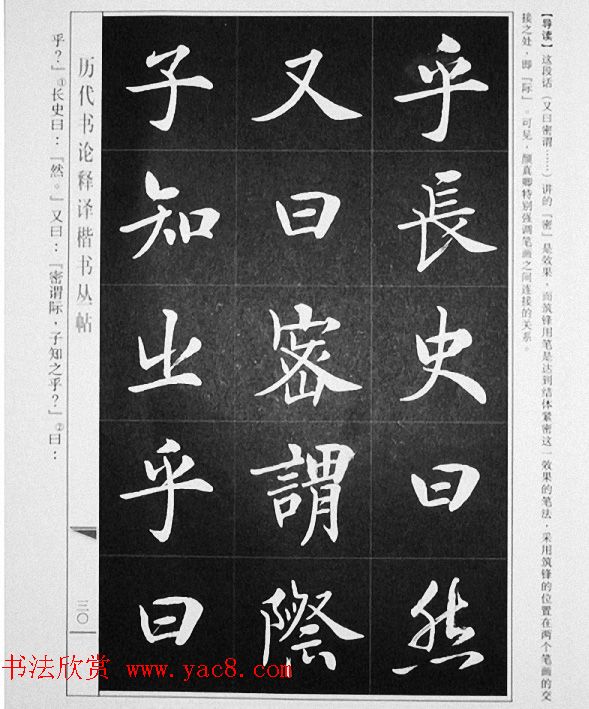 【导读】这段话（又曰密谓……）讲的『密』是效果，而筑锋用笔是达到结体紧密这一效果的笔法，采用筑锋的位置在两个笔画的交
接之处，即『际』。可见，颜真卿特别强调笔画之间连接的关系。
乎長史曰然
又曰密謂際
子知之乎曰
历代书论释译楷书丛帖
三〇
乎？』①长史曰：『然。』又曰：『密谓际，子知之乎？』②曰：
书法欣赏 www.yac8.com